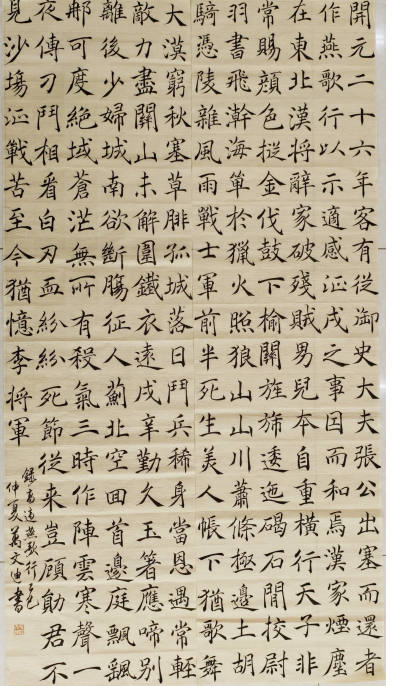 開元二十六年客有從御史大夫張公出塞而還者
作燕歌行以示適感征戍之事因而和焉漢家煙塵
在東北漢將辭家破殘賊男兒本自重橫行天子非
常賜顏色摐金伐鼓下榆關旌旆逶迤碣石間校尉
羽書飛瀚海單於獵火照狼山山川蕭條極邊土胡
騎憑陵雜風雨戰士軍前半死生美人帳下猶歌舞
大漠窮秋塞草腓孤城落日鬥兵稀身當恩遇常輕
敵力盡關山未解圍鐵衣遠戍辛勤久玉箸應啼別
離後少婦城南欲斷腸征人薊北空回首邊庭飄颻
那可度絕域蒼茫無所有殺氣三時作陣雲寒聲一
夜傳刁鬥相看白刃血紛紛死節從來豈顧勛君不
見沙場征戰苦至今猶憶李將軍
錄高適燕歌行
仲夏萬文迪書